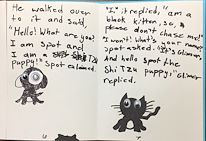 He walked over
to it and said,
"Hello! What are you?
I am Spot and
I am a Shi Tzu
puppy!" Spot exclaimed.
"I" it replied, "am a
black kitten, so,
please don't chase me!"
"I won't! What's your name,"
Spot asked. "It's Glimer,
And hello Spot the
Shi Tzu puppy," Glimer
replied.
6
7